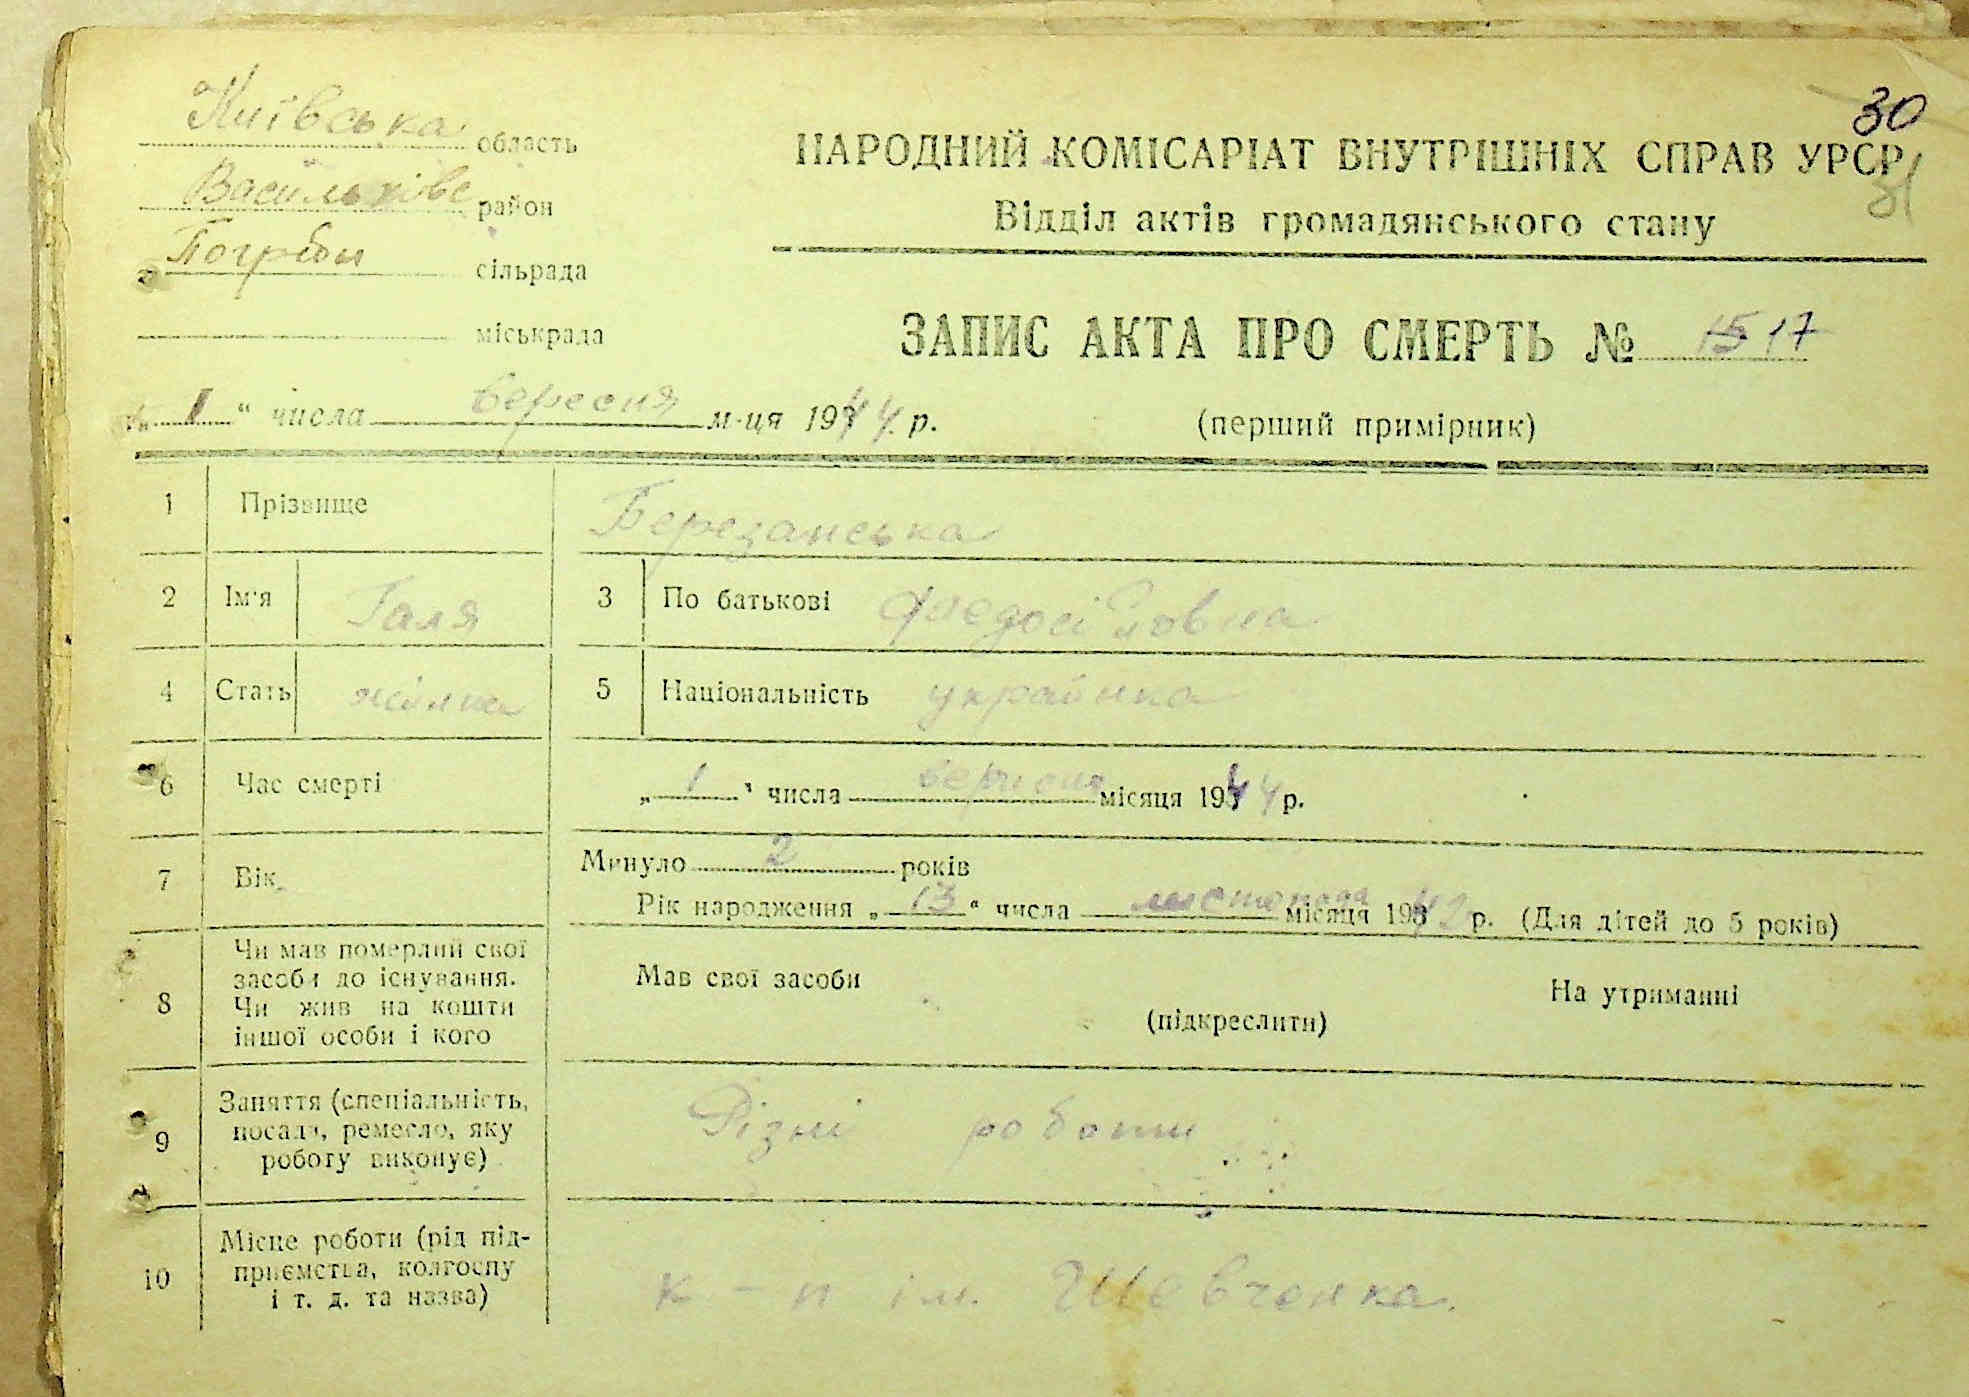 Київська область
30
НАРОДНИЙ КОМІСАРІАТ ВНУТРІШНІХ СПРАВ УРСР
31
Васильківс район
Відділ актів громадянського стану
Погреби сільрада
міськрада
ЗАПИС АКТА ПРО СМЕРТЬ № 15 17
„ 1 “ числа вересня м-ця 1944 р.
(перший примірник)
1 Прізвище Березанська
2 Ім'я Галя 3 По батькові Федосіївна
4 Стать жінка 5 Національність українка
6 Час смерті „ 1 “ числа вересня місяця 1944 р.
7 Вік Минуло 2 років
Рік народження „ 13 “ числа листопада місяця 1942 р. (Для дітей до 5 років)
8 Чи мав померлий свої
засоби до існування.
Чи жив на кошти
іншої особи і кого
Мав свої засоби
На утриманні
(підкреслити)
9 Заняття (спеціальність,
посада, ремесло, яку
роботу виконує)
Різні роботи
10 Місце роботи (рід під-
приємства, колгоспу
і т. д. та назва)
к-п ім. Шевченка.